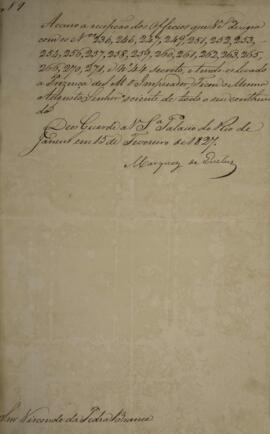 Nº 1
Accuso a recepção dos Officios que V. Sª dirigio
com os Nos 236, 246, 247, 249, 251, 252, 253,
255, 256, 257, 258, 259, 260, 261, 262, 263, 265,
266, 270, 271, e Nº 44 secreto, e tendo-os levado
a Prezença de S. M. o Imperador Ficou o Mesmo
Augusto Senhor sciente de todo o seu contheu-
do.
Deos Guarde a V. Sª Palacio do Rio de
Janeiro em 15 de Fevereiro de 1827.
Marquez de Queluz
Snr Visconde da Pedra Branca